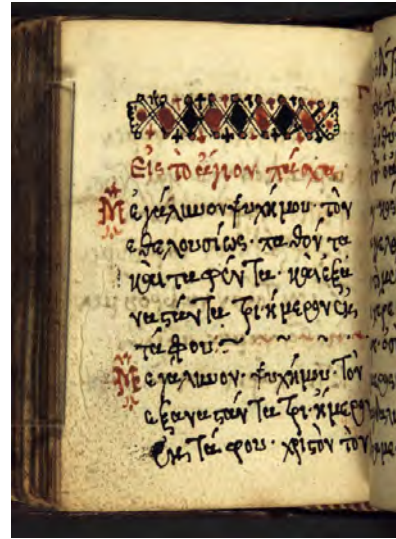 Εἰς τὸ ἅγιον πάσχα·
Μεγάλυνον ψυχή μου· τὸν
ἐθελουσίως· παθόντα
καὶ ταφέντα· καὶ ἐξα
ναστάντα τριήμερον ἐκ
τάφου·
Μεγάλυνον· ψυχή μου· Τὸν
ἐξαναστάντα τριήμερον
ἐκ Τάφου· χριστὸν τὸν